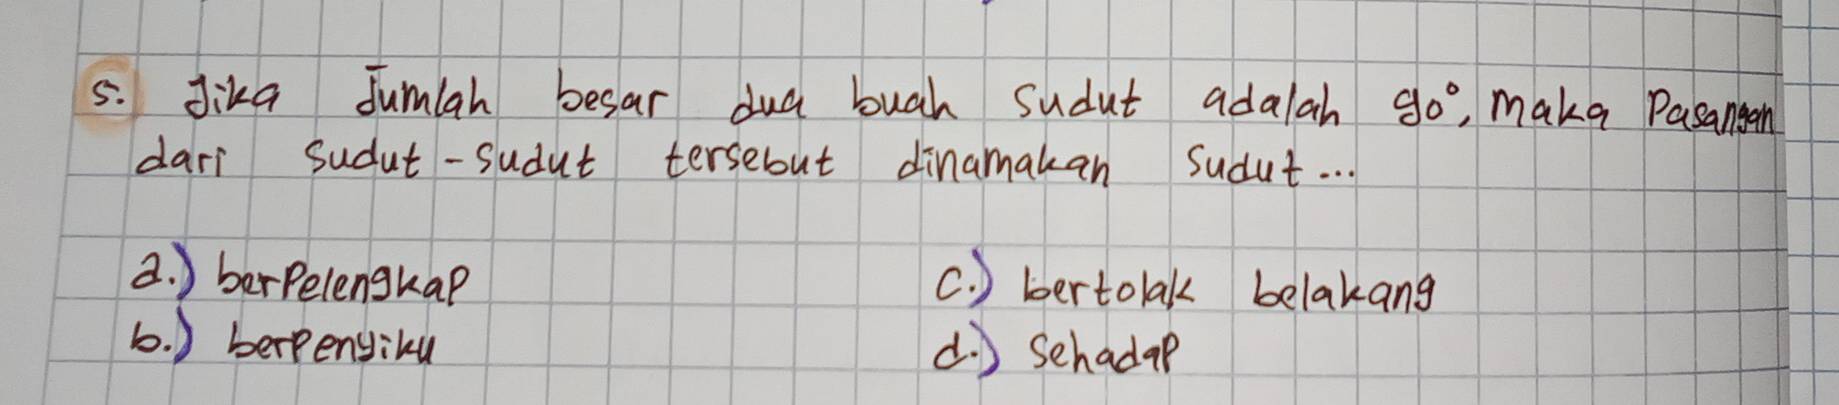 5. Jika Jumlah besar dua buah sudut adalah 90°, maka Pasangan
dari sudut-sudut tersebut dinamakan sudut...
a.) berpelengkap
b.) berpenyiku
c.) bertolak belakang
d.) Sehadap